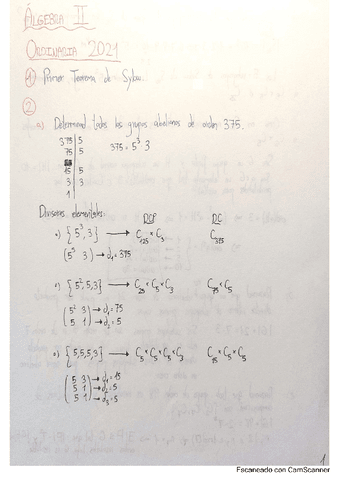 ÁLGEBRA II
ORDINARIA 2021
1) Primer Teorema de Sylow.
2
a) Determinad todos los grupos abelianos de orden 375.
375 | 5    375 = 5³ 3
75 | 5
15 | 5
3 | 3
1
Divisores elementales:    DCP    DC
•) {5³, 3} → C₁₂₅ × C₃    C₃₇₅
(5³ 3) → d₁ = 375
•) {5², 5, 3} → C₂₅ × C₅ × C₃    C₇₅ × C₅
(5² 3) → d₁ = 75
(5 1) → d₂ = 5
•) {5, 5, 5, 3} → C₅ × C₅ × C₅ × C₃    C₁₅ × C₅ × C₅
(5 3) → d₁ = 15
(5 1) → d₂ = 5
(5 1) → d₃ = 5
1
Escaneado con CamScanner